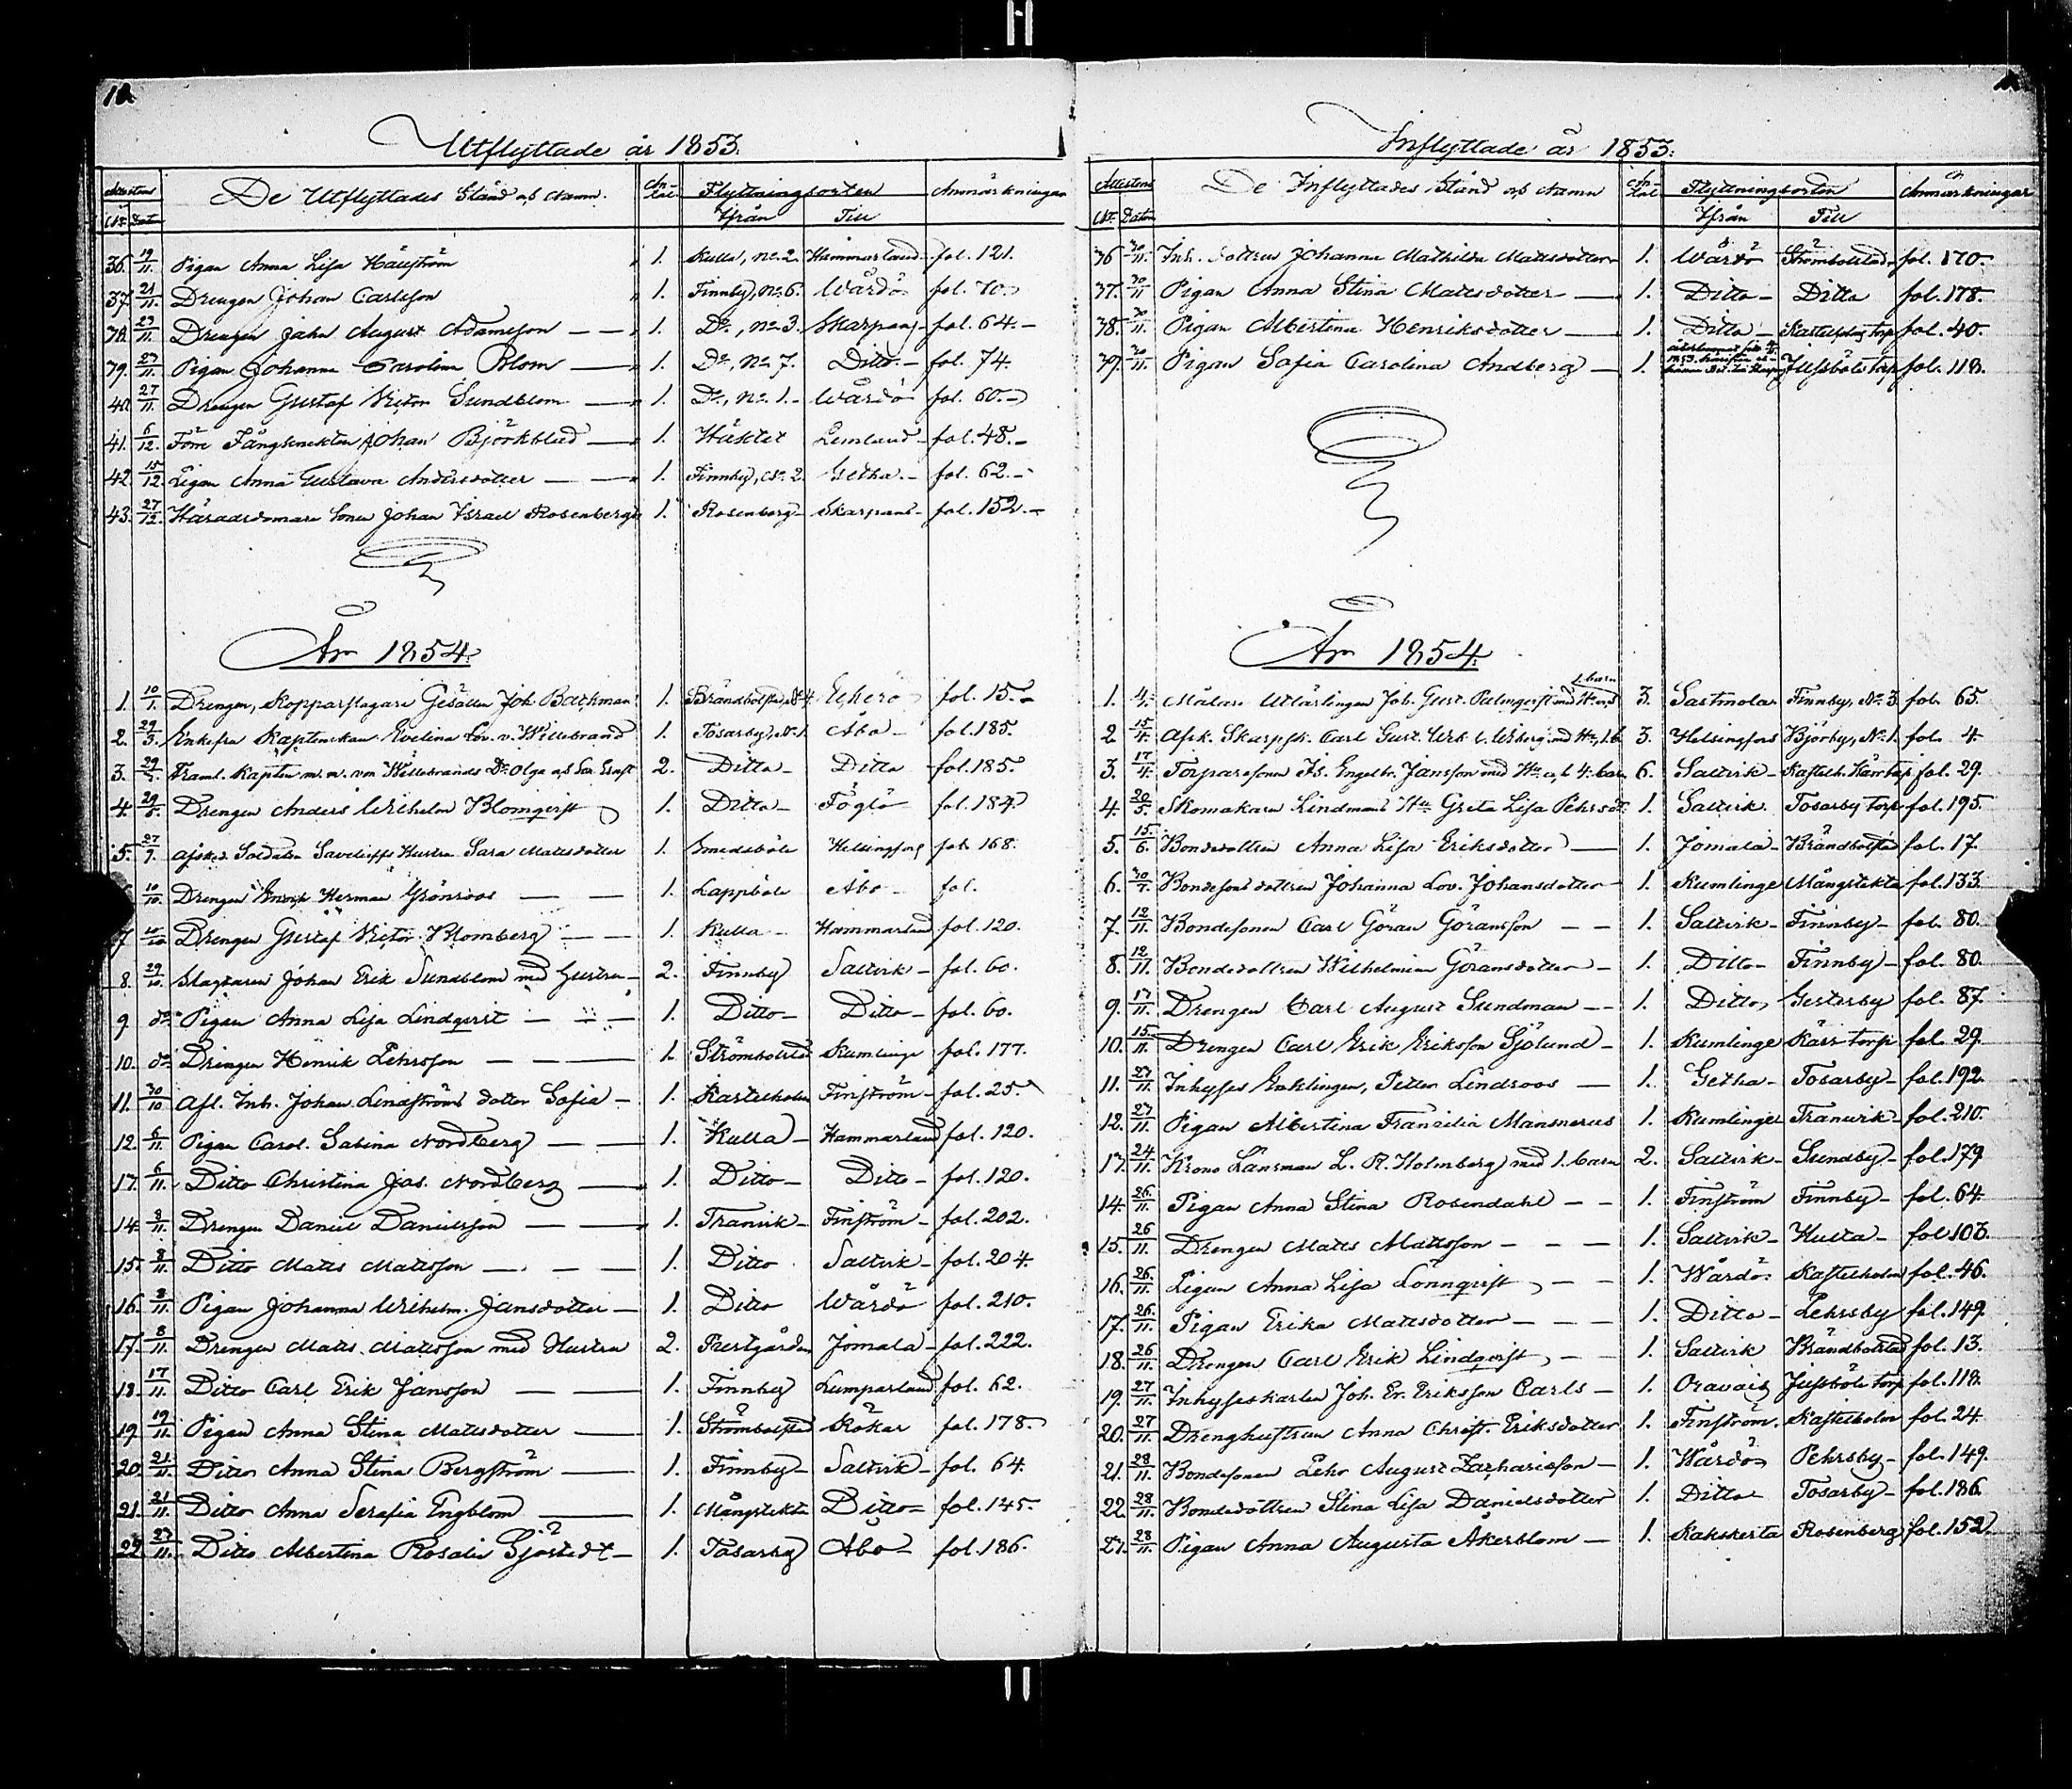 Utflyttade år 1853.
Attestens
De Utflyttades Stånd och Namn.
Antal
Flyttningsorten
Anmärkningar
No Dat.
Ifrån Till
36. 19/11. Pigan Anna Lisa Häggström 1. Kulla, No. 2. Hammarland fol. 121.
37. 21/11. Drengen Johan Carlsson 1. Finnby, No. 6. Wårdö fol. 70.
38. 23/11. Drengen Jahn August Adamsson 1. Do., No. 3. Skarpans fol. 64.
39. 23/11. Pigan Johanna Carolina Blom 1. Do, No. 7. Ditto fol. 74.
40. 27/11. Drengen Gustaf Victor Sundblom 1. Do., No. 1. Wårdö fol. 60.
41. 6/12. Före Fångknekten Johan Björkblad 1. Häktet Lemland fol. 48.
42. 15/12. Pigan Anna Gustava Andersdotter 1. Finnby, No. 2. Getha fol. 62.
43. 27/12. Häradsdomare Sonen Johan Israel Rosenberg 1. Rosenberg Skarpans fol. 152.
År 1854.
1. 10/1. Drengen, Kopparslagare Gesällen Joh. Backman 1. Brändbolstad, No 4. Ekerö fol. 15.
2. 29/3. Enkefru Kaptenskan Evelina Lov. v. Willebrand 1. Tosarby, No. 1. Åbo fol. 185.
3. 29/3. Framl. Kapten m. m. von Willebrands Dr Olga och Son Ernst 2. Ditto Ditto fol. 185.
4. 29/5. Drengen Anders Wilhelm Blomqvist 1. Ditto Föglö fol. 184.
5. 27/7. Afsked. Soldaten Saveleffs Hustru Sara Matsdotter 1. Smedsböle Helsingfors fol. 168.
10/10. Drengen Henrik Herman Grönroos 1. Lappböle Åbo fol.
7 10/10 Drengen Gustaf Victor Blomberg 1. Kulla Hammarland fol. 120.
8. 29/10. Slagtaren Johan Erik Sundblom med Hustru 2. Finnby Saltvik fol. 60.
9. do Pigan Anna Lisa Lindqvist 1. Ditto Ditto fol. 60.
10. do Drengen Henrik Pehrsson 1. Strömbolstad Kumlinge fol. 177.
11. 30/10 Afl. Inh. Johan Lindströms dotter Sofia 1. Kastelholm Finström fol. 25.
12. 6/11. Pigan Carol. Sabina Nordberg 1. Kulla Hammarland fol. 120.
13. 6/11. Ditto Christina Jos. Nordberg 1. Ditto Ditto fol. 120.
14. 8/11. Drengen Daniel Danielsson 1. Tranvik Finström fol. 202.
15. 8/11. Ditto Matts Mattsson 1. Ditto Saltvik fol. 204.
16. 8/11. Pigan Johanna Wilhelm. Jansdotter 1. Ditto Wårdö fol. 210.
17. 8/11. Drengen Matts Mattsson med Hustru 2. Prestgården Jomala fol. 222.
18. 17/11. Ditto Carl Erik Jansson 1. Finnby Lumparland fol. 62.
19. 19/11. Pigan Anna Stina Mattsdotter 1. Strömbolstad Kökar fol. 178.
20. 21/11. Ditto Anna Stina Bergström 1. Finnby Saltvik fol. 64.
21. 21/11. Ditto Anna Serafia Engblom 1. Mångstekta Ditto fol. 145.
22. 27/11. Ditto Albertina Rosalie Sjöstedt 1. Tosarby Åbo fol. 186.
Inflyttade år 1853.
Attestens
De Inflyttades Stånd och Namn
Antal
Flyttningsorten
Anmärkningar
No. Datum
Ifrån Till
36 30/11. Inh. dottren Johanna Mathilda Mattsdotter 1. Wårdö Strömbolstad fol. 170.
37. 30/11 Pigan Anna Stina Mattsdotter 1. Ditto Ditto fol. 178.
38. 30/11. Pigan Albertina Henriksdotter 1. Ditto Kastelholms torp fol. 40.
39. 30/11. Pigan Sofia Carolina Andberg 1. Jussböle torp fol. 118.
År 1854.
1. barn
1. Målare Utlärlingen Joh. Gust. Palmqvist med Hu och 3. Sastmola Finnby, No. 3. fol. 65.
2. 15/4. Afsk. Skarpsk. Carl Gust. Wiberg med Hu, 1 b. 3. Helsingfors Björby, No. 1. fol. 4.
3. 17/4. Torparesonen Is. Engelbr. Jansson med Hu och 4. barn 6. Saltvik Kastelh. Kärr torp fol. 29.
4. 20/5. Skomakaren Lindmans Hu Greta Lisa Pehrsdr 1. Saltvik Tosarby torp fol. 195.
5. 15/6. Bondedottren Anna Lisa Eriksdotter 1. Jomala Brändbolstad fol. 17.
6. 30/7. Bondesons dottren Johanna Lov. Johansdotter 1. Kumlinge Mångstekta fol. 133.
7. 12/11. Bondesonen Carl Göran Göransson 1. Saltvik Finnby fol. 80.
8. 12/11. Bondedottren Wilhelmina Göransdotter 1. Ditto Finnby fol. 80.
9. 17/11. Drengen Carl August Sundman 1. Ditto Gesterby fol. 87.
10. 15/11. Drengen Carl Erik Eriksson Sjölund 1. Kumlinge Kärr torp fol. 29.
11. 27/11. Inhyses Enklingen, Petter Lindroos 1. Getha Tosarby fol. 192.
12. 27/11. Pigan Albertina Fransilia Mansnerus 1. Kumlinge Tranvik fol. 210.
13. 24/11. Krono Länsman L. R. Holmberg med 1. barn 2. Saltvik Sundby fol. 179
14. 26/11. Pigan Anna Stina Rosendahl 1. Finström Finnby fol. 64.
15. 26/11. Drengen Matts Mattsson 1. Saltvik Hulta fol 103.
16. 26/11. Pigan Anna Lisa Lönnqvist 1. Wårdö Kastelholm fol. 46.
17. 26/11. Pigan Erika Mattsdotter 1. Ditto Pehrsby fol. 149.
18. 26/11. Drengen Carl Erik Lindqvist 1. Saltvik Brändbolstad fol. 13.
19. 27/11. Inhyseskarlen Joh. Er. Eriksson Carls 1. Oravais Jussböle torp fol. 118.
20. 27/11. Drenghustrun Anna Christ. Eriksdotter 1. Finström Kastelholm fol. 24.
21. 28/11. Bondesonen Pehr August Zachariesson 1. Wårdö Pehrsby fol. 149.
22. 28/11. Bondedottren Stina Lisa Danielsdotter 1. Ditto Tosarby fol. 186.
23. 28/11. Pigan Anna Augusta Åkerblom 1. Kakskerta Rosenberg fol. 152.